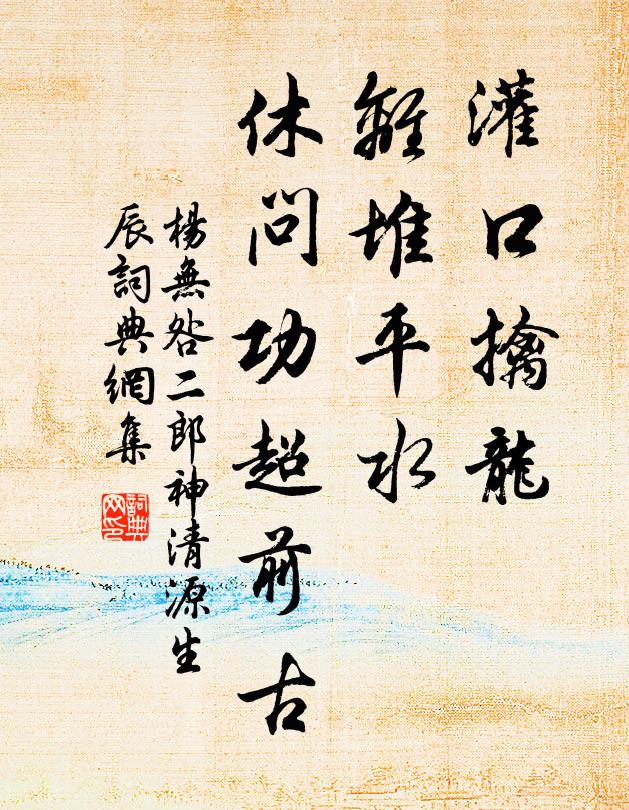 灌口擒龍
離堆平水
休問功超前古
楊無咎二郎神清源生
辰詞典網集
詞典網印